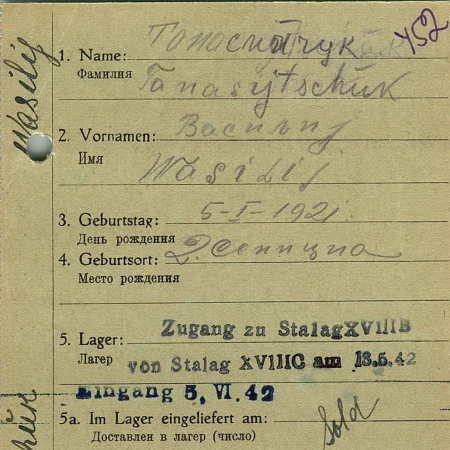 Wasilij
752
1. Name:
Фамилия
Tanasijtschuk
2. Vornamen: Василий
Имя
Wasilij
3. Geburtstag: 5-I-1921.
День рождения
4. Geburtsort:
Место рождения
5. Lager: Zugang zu Stalag XVIIIB
Лагер von Stalag XVIIIC am 13.5.42
Eingang 5. VI. 42
5a. Im Lager eingeliefert am:
Доставлен в лагер (число)
Sold